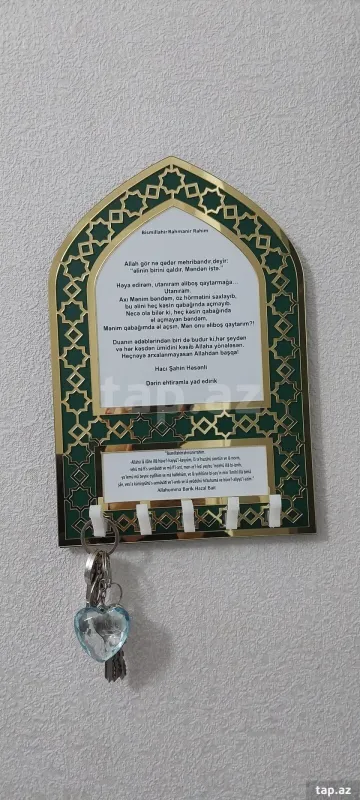 Bismillahir Rahmanir Rahim
Allah gör nə qədər mehribandır,deyir:
"əlinin birini qaldır, Məndən istə."
Həya edirəm, utanıram əliboş qaytarmağa...
Utanıram.
Axı Mənim bəndəm, öz hörmətini saxlayıb,
bu əlini heç kəsin qabağında açmayıb.
Necə ola bilər ki, heç kəsin qabağında
əl açmayan bəndəm,
Mənim qabağımda əl açsın, Mən onu əliboş qaytarım?!
Duanın ədəblərindən biri də budur ki,hər şeydən
və hər kəsdən ümidini kəsib Allaha yönələsən.
Heçnəyə arxalanmayasan Allahdan başqa!
Hacı Şahin Həsənli
Dərin ehtiramla yad edirik
tap.az
"Bismillahirrahmanirrahim
Allahümmə Barik Həzəl Bəit
tap.az